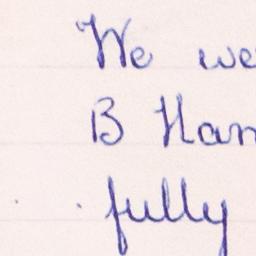 We we
B Han
fully